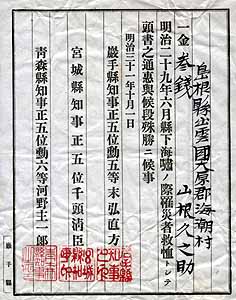 島根縣出雲國大原郡海潮村
山根久之助
一金叁錢
明治二十九年六月縣下海嘯ノ際罹災者救恤トシテ
頭書之通惠與候段殊勝ニ候事
明治三十一年十月一日
巖手縣知事正五位勳五等末弘直方
宮城縣知事正五位千頭清臣
青森縣知事正五位勳六等河野主一郎
巖手縣